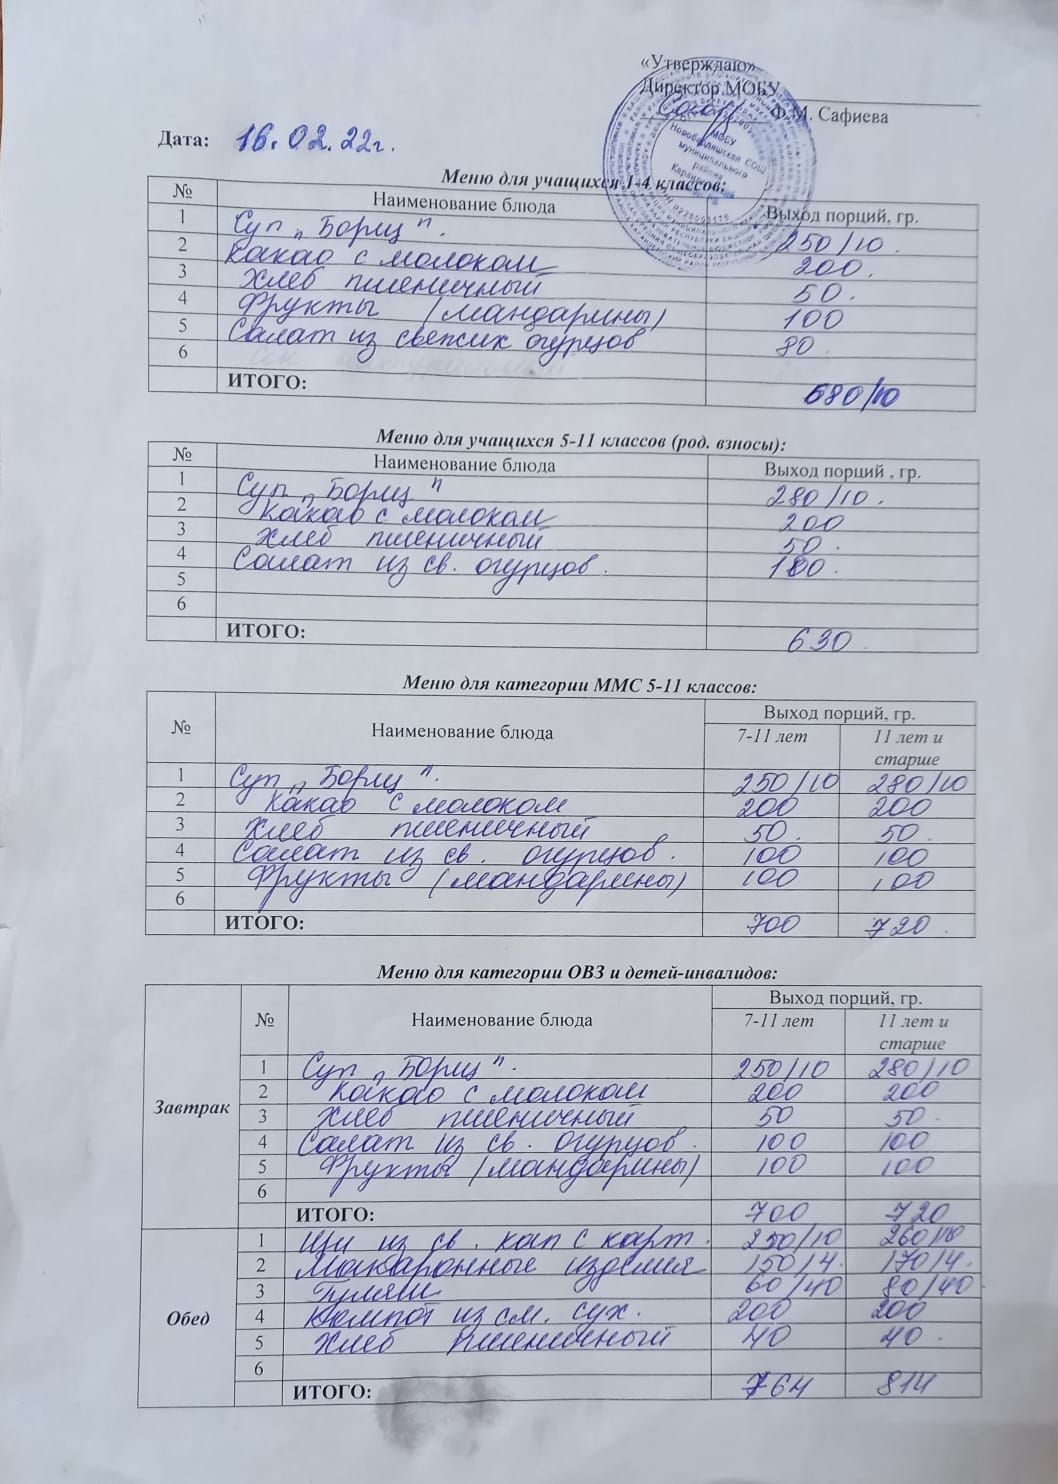 «Утверждаю»
Директор МОБУ
Ф.М. Сафиева
МОБУ
СОШ
муниципального
района
Дата: 16.02.22г.
Меню для учащихся 1-4 классов:
№ Наименование блюда Выход порций, гр.
1 Суп „Борщ". 250/10.
2 Какао с молоком 200.
3 Хлеб пшеничный 50.
4 Фрукты (мандарины) 100
5 Салат из свежих огурцов 80.
6
ИТОГО: 680/10
Меню для учащихся 5-11 классов (род. взносы):
№ Наименование блюда Выход порций , гр.
1 Суп „Борщ" 280/10.
2 Какао с молоком 200
3 Хлеб пшеничный 50.
4 Салат из св. огурцов. 100.
5
6
ИТОГО: 630
Меню для категории ММС 5-11 классов:
№ Наименование блюда Выход порций, гр.
7-11 лет 11 лет и
старше
1 Суп „Борщ". 250/10 280/10
2 Какао с молоком 200 200
3 Хлеб пшеничный 50. 50.
4 Салат из св. огурцов. 100 100
5 Фрукты (мандарины) 100 100
6
ИТОГО: 700 720.
Меню для категории ОВЗ и детей-инвалидов:
№ Наименование блюда Выход порций, гр.
7-11 лет 11 лет и
старше
Завтрак
1 Суп „Борщ". 250/10 280/10
2 Какао с молоком 200 200
3 Хлеб пшеничный 50 50.
4 Салат из св. огурцов. 100 100
5 Фрукты (мандарины) 100 100
6
ИТОГО: 700 720
Обед
1 Щи из св. кап с карт. 250/10 260/10
2 Макаронные изделия 150/4. 170/4.
3 Гуляш 60/40 80/40.
4 Компот из см. сух. 200 200
5 Хлеб пшеничный 40 40.
6
ИТОГО: 764 814